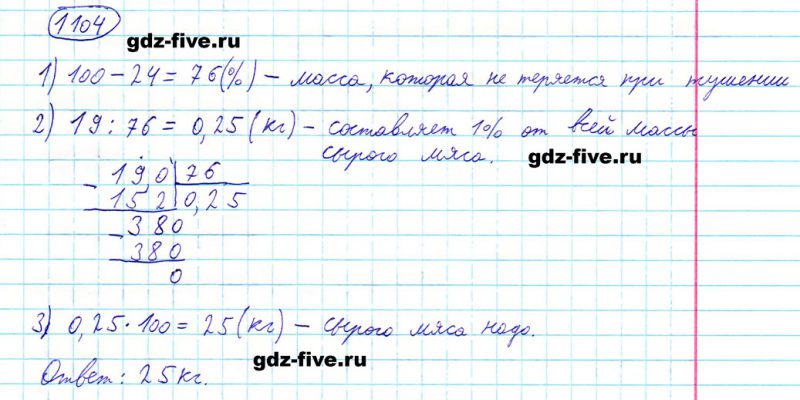 1104
gdz-five.ru
1) 100 - 24 = 76(%) - масса, которая не теряется при тушении
2) 19 : 76 = 0,25 (кг) - составляет 1% от всей массы
сырого мяса.
gdz-five.ru
- 19,0 | 76
152 | 0,25
- 380
380
0
3) 0,25 · 100 = 25 (кг) - сырого мяса надо.
gdz-five.ru
Ответ: 25 кг.